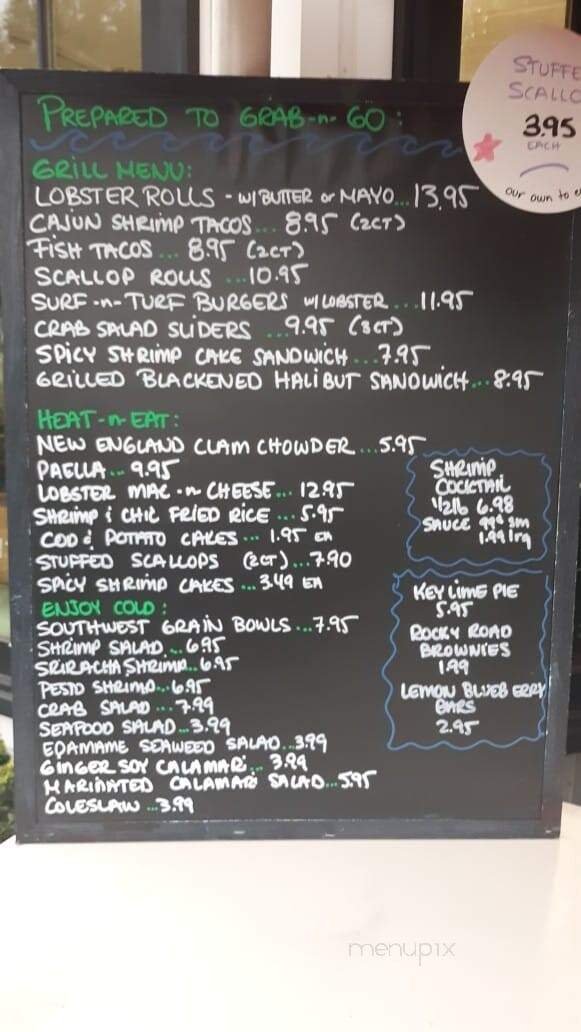 PREPARED TO GRAB-n-GO:
GRILL MENU:
LOBSTER ROLLS - W/ BUTTER or MAYO...13.95
CAJUN SHRIMP TACOS... 8.95 (2CT)
FISH TACOS... 8.95 (2CT)
SCALLOP ROLLS ...10.95
SURF-n-TURF BURGERS W/ LOBSTER...11.95
CRAB SALAD SLIDERS ...9.95 (3CT)
SPICY SHRIMP CAKE SANDWICH...7.95
GRILLED BLACKENED HALIBUT SANDWICH...8.95
HEAT-n-EAT:
NEW ENGLAND CLAM CHOWDER...5.95
PAELLA... 9.95
LOBSTER MAC-n-CHEESE... 12.95
SHRIMP & CHIC FRIED RICE ...5.95
COD & POTATO CAKES... 1.95 EA
STUFFED SCALLOPS (2CT)...7.90
SPICY SHRIMP CAKES ...3.49 EA
ENJOY COLD:
SOUTHWEST GRAIN BOWLS...7.95
SHRIMP SALAD...6.95
SRIRACHA SHRIMP..6.95
PESTO SHRIMP...6.95
CRAB SALAD ...7.99
SEAFOOD SALAD...3.99
EDAMAME SEAWEED SALAD..3.99
GINGER SOY CALAMARI... 3.99
MARINATED CALAMARI SALAD...5.95
COLESLAW...3.99
SHRIMP
COCKTAIL
1/2 lb 6.98
SAUCE 99¢ sm
1.99 lrg
KEY LIME PIE
5.95
ROCKY ROAD
BROWNIES
1.99
LEMON BLUEBERRY
BARS
2.95
STUFFE
SCALLO
3.95
EACH
our own to e
menupix